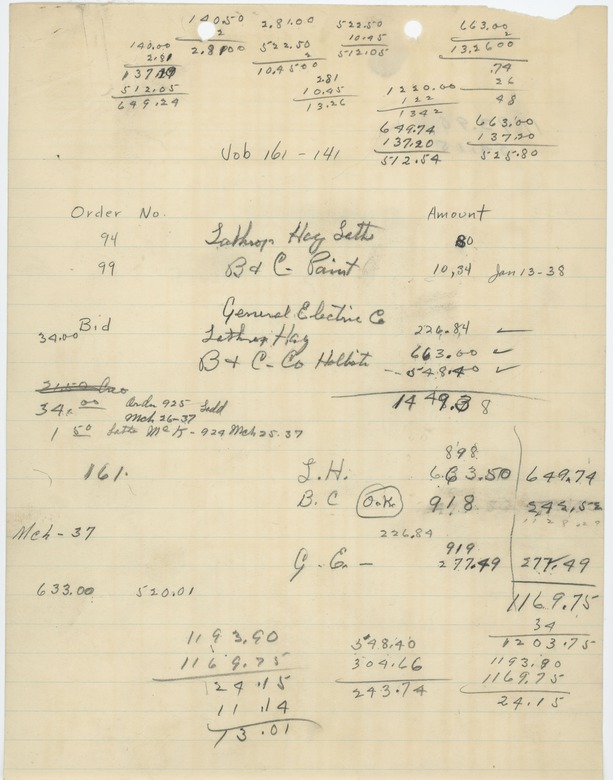 140.50
2
2.8100
2.81.00
522.50
2
10.4500
522.50
10.45
512.05
663.00
2
13.2600
140.00
2.81
137.19
512.05
649.24
2.81
10.45
13.26
.74
26
48
1220.00
122
1342
649.74
137.20
512.54
663.00
137.20
525.80
Job 161 - 141
Order No. Amount
94 Lathrop Hay Lath 80
99 B & C - Paint 10,34 Jan 13-38
Bid General Electric Co 226.84
34.00 Lathrop Hay 663.00
B & C - Co 548.40
1449.38
34.00 Order 925
Mch 26-37
1 50 924 Mch 25.37
161.
898
L.H. 663.50 649.74
B.C O.K. 918 242.52
Mch - 37
226.84
919
G - E - 277.49 277.49
1169.75
34
1203.75
633.00 520.01
1193.90
1169.75
24.15
11.14
13.01
548.40
304.66
243.74
1193.90
1169.75
24.15